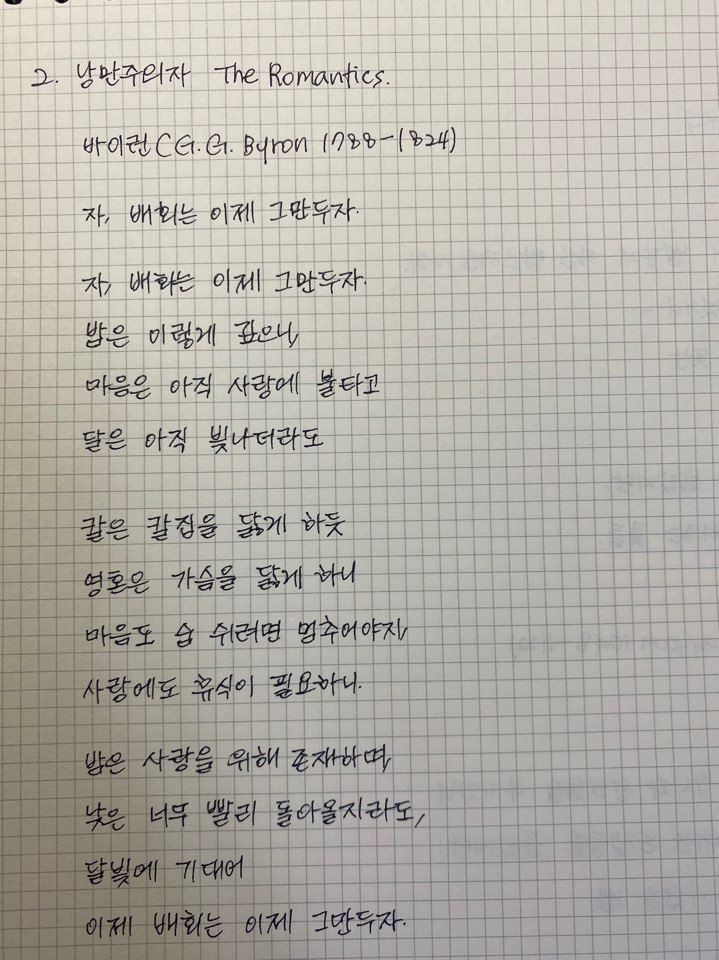 2. 낭만주의자 The Romantics.
바이런 (G.G. Byron 1788-1824)
자, 배회는 이제 그만두자.
자, 배회는 이제 그만두자.
밤은 이렇게 깊으니,
마음은 아직 사랑에 불타고
달은 아직 빛나더라도
칼은 칼집을 닳게 하듯
영혼은 가슴을 닳게 하니
마음도 숨 쉬려면 멈추어야지,
사랑에도 휴식이 필요하니.
밤은 사랑을 위해 존재하며,
낮은 너무 빨리 돌아올지라도,
달빛에 기대어
이제 배회는 이제 그만두자.